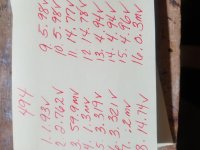 494
1. 1.93V
2. 2.762V
3. 59.9mV
4. 1.3mV
5. 3.319V
6. 3.321V
7. .2mV
8. 14.71V
9. 5.98V
10. 5.98V
11. 14.77V
12. 14.78V
13. 4.94V
14. 4.96V
15. 4.96V
16. 0.3mV